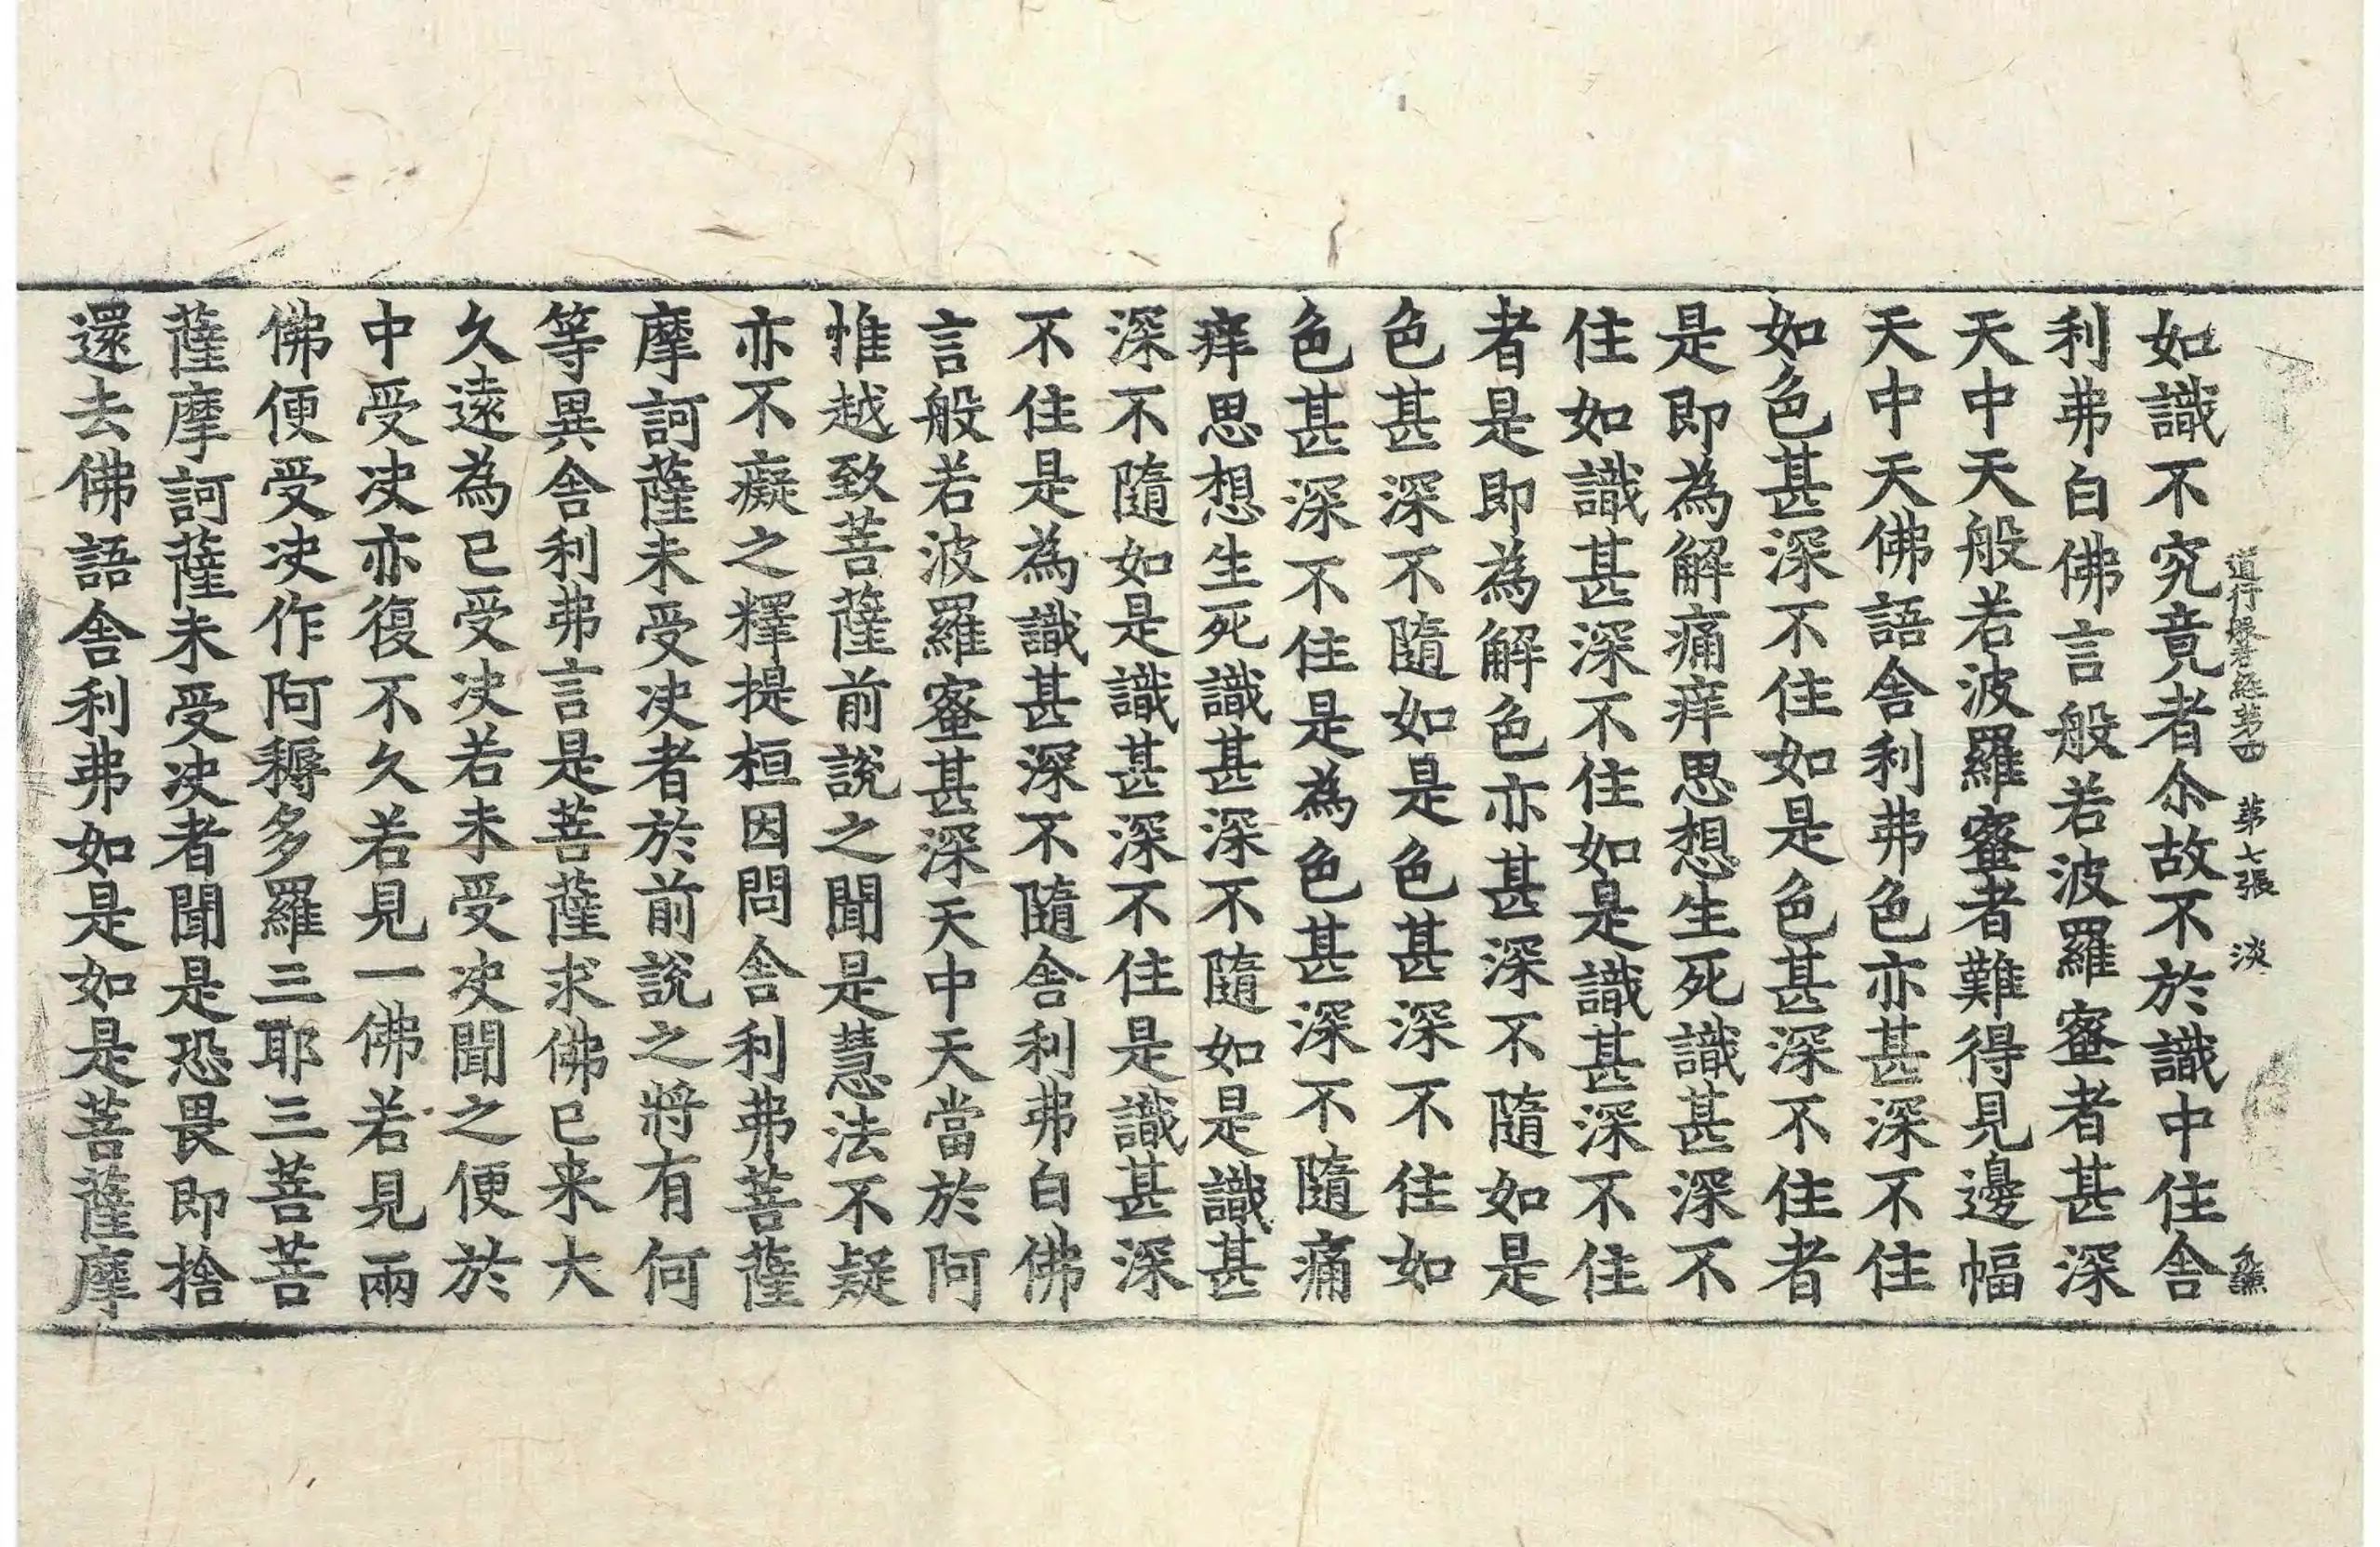 道行般若經第四　第七張　淡
如識不究竟者尒故不於識中住舎
利弗白佛言般若波羅蜜者甚深
天中天般若波羅蜜者難得見邊幅
天中天佛語舎利弗色亦甚深不住
如色甚深不住如是色甚深不住者
是即為解痛痒思想生死識甚深不
住如識甚深不住如是識甚深不住
者是即為解色亦甚深不隨如是
色甚深不隨如是色甚深不住如
色甚深不住是為色甚深不隨痛
痒思想生死識甚深不隨如是識甚
深不隨如是識甚深不住是識甚深
不住是為識甚深不隨舎利弗白佛
言般若波羅蜜甚深天中天當於阿
惟越致菩薩前說之聞是慧法不疑
亦不癡之釋提桓因問舎利弗菩薩
摩訶薩未受决者於前說之將有何
等異舎利弗言是菩薩求佛已来大
久遠為已受决若未受决聞之便於
中受决亦復不久若見一佛若見兩
佛便受决作阿耨多羅三耶三菩菩
薩摩訶薩未受决者聞是恐畏即捨
還去佛語舎利弗如是如是菩薩摩